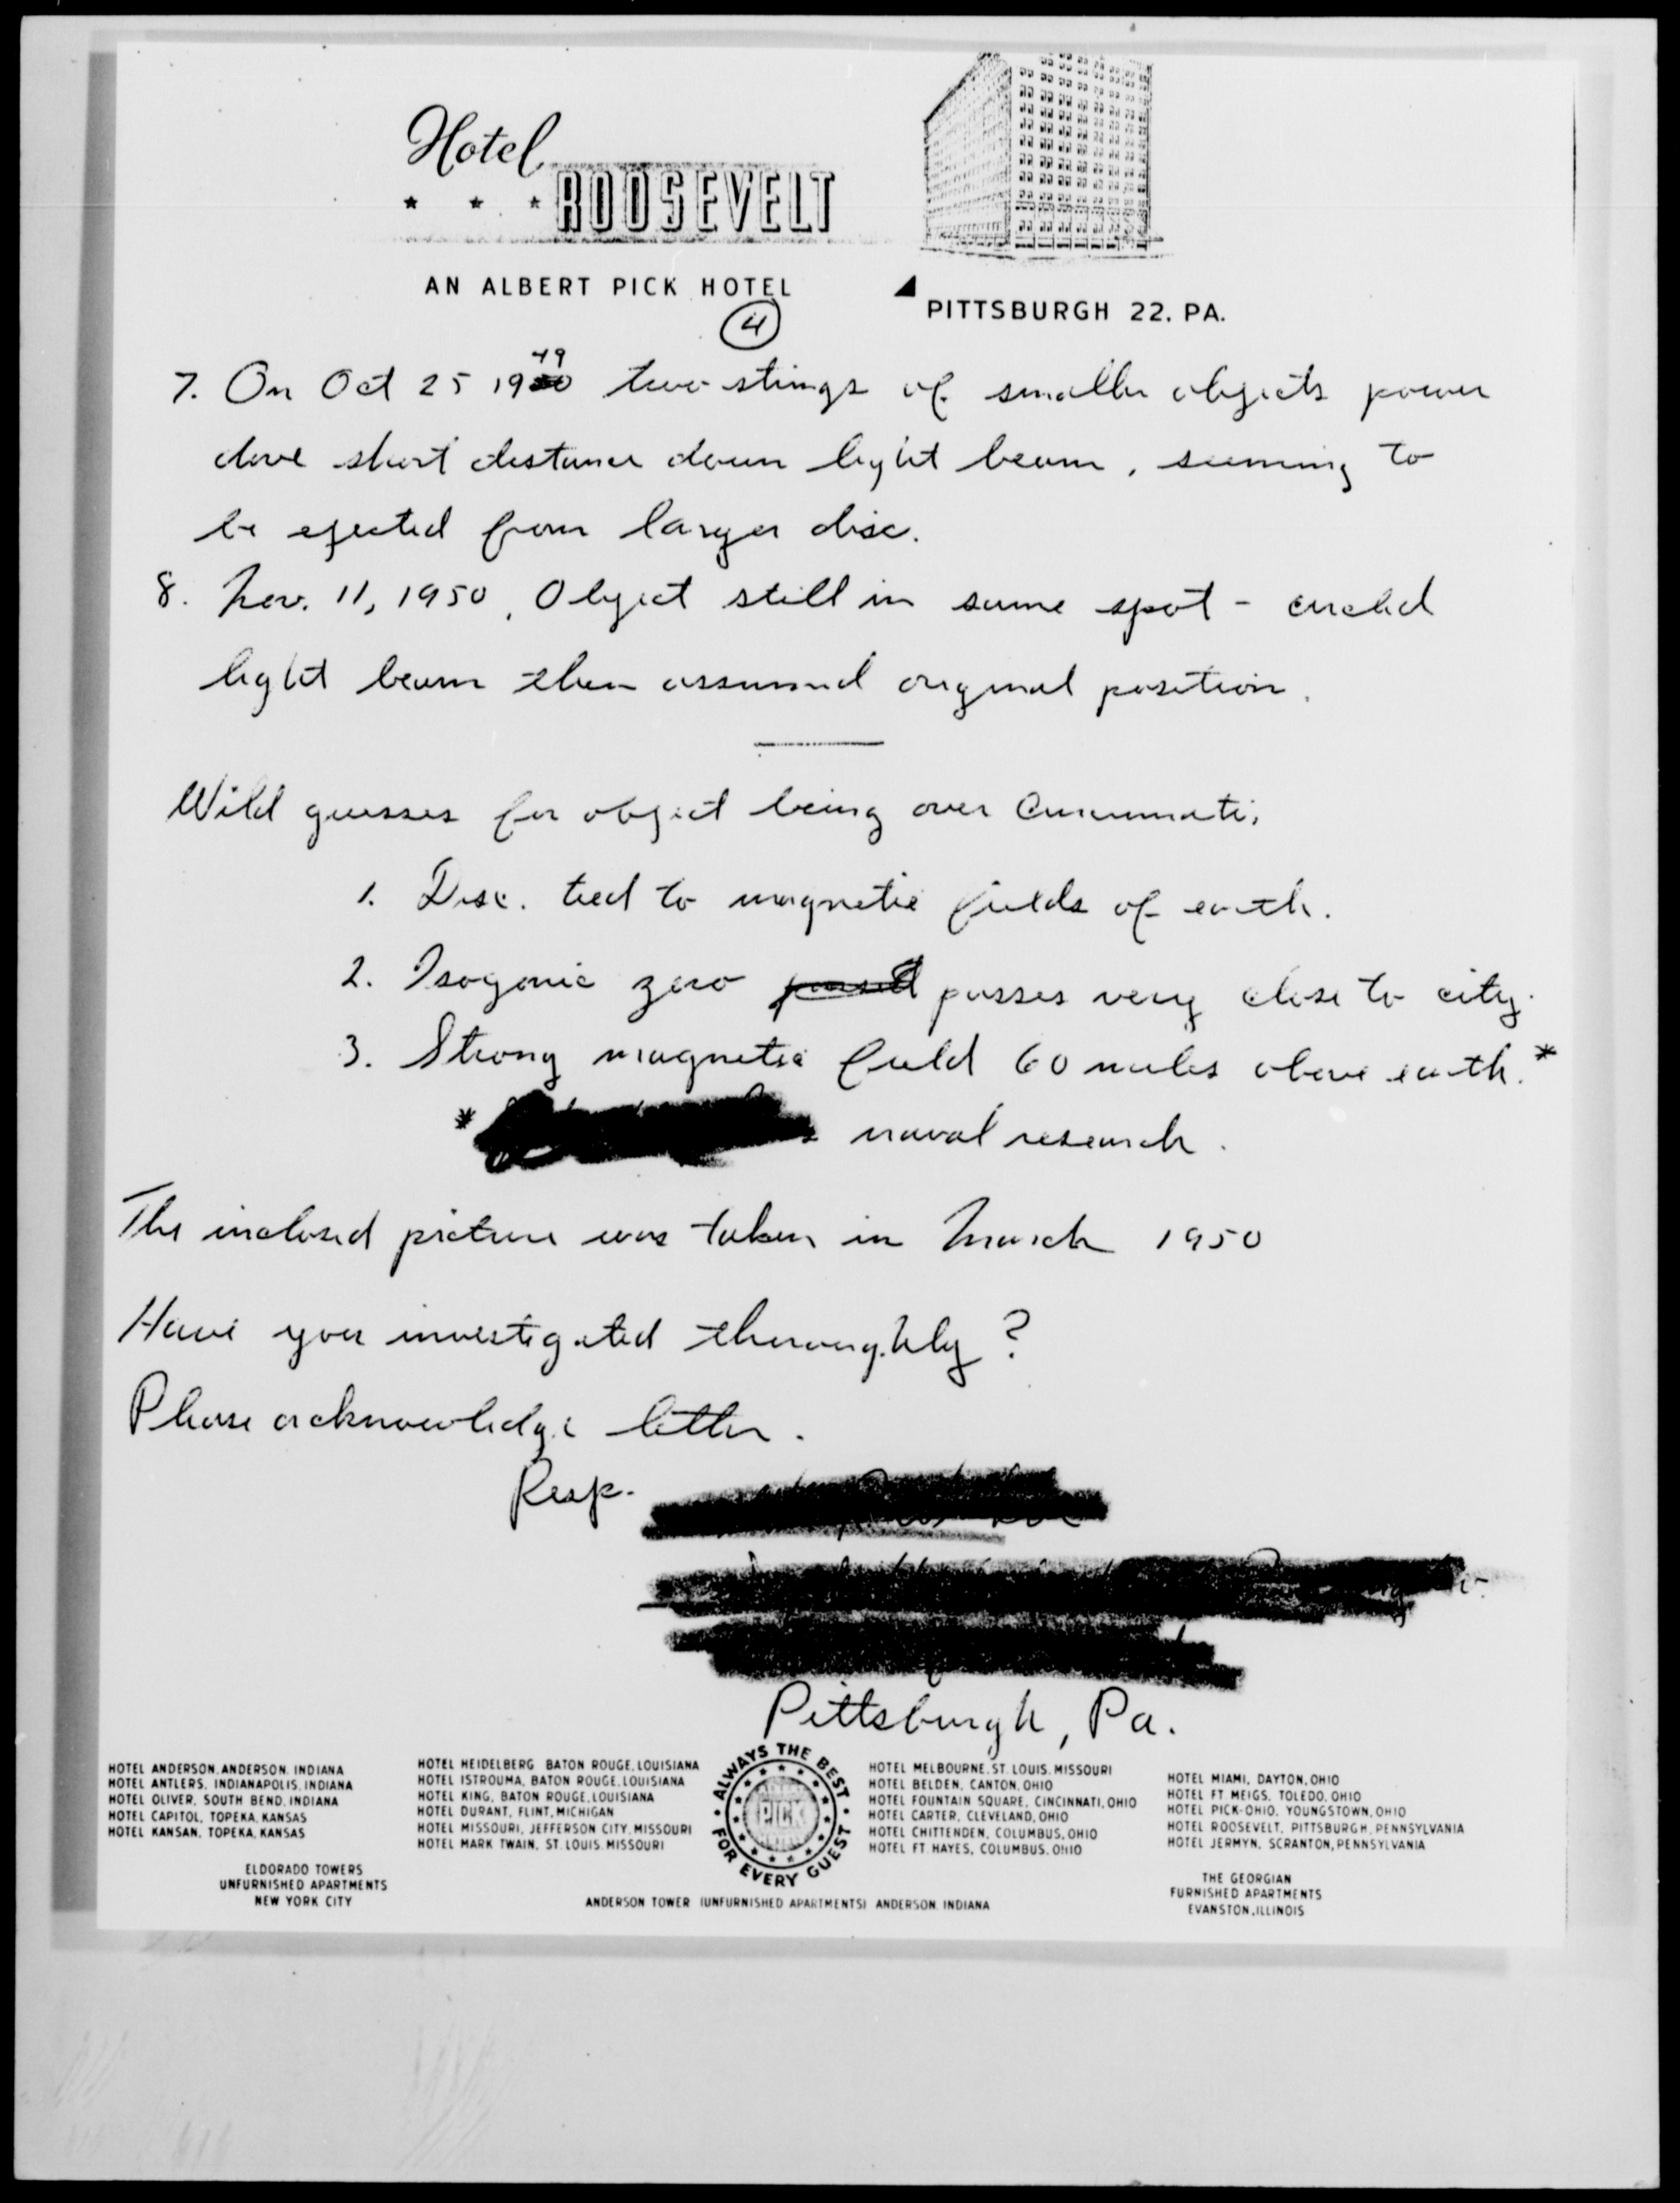 Hotel
ROOSEVELT
AN ALBERT PICK HOTEL
PITTSBURGH 22. PA.
4
7. On Oct 25 1949 two stings of smaller objects power
dove short distance down light beam, seeming to
be ejected from larger disc.
8. Nov. 11, 1950, Object still in same spot - circled
light beam then assumed original position.
Wild guesses for object being over Cincinnati;
1. Disc. tied to magnetic fields of earth.
2. Isogonic zero passes very close to city.
3. Strong magnetic field 60 miles above earth.*
* naval research.
The inclosed picture was taken in March 1950
Have you investigated thoroughly?
Please acknowledge letter.
Resp.
Pittsburgh, Pa.
HOTEL ANDERSON, ANDERSON, INDIANA
HOTEL ANTLERS, INDIANAPOLIS, INDIANA
HOTEL OLIVER, SOUTH BEND, INDIANA
HOTEL CAPITOL, TOPEKA, KANSAS
HOTEL KANSAN, TOPEKA, KANSAS
ELDORADO TOWERS
UNFURNISHED APARTMENTS
NEW YORK CITY
HOTEL HEIDELBERG BATON ROUGE, LOUISIANA
HOTEL ISTROUMA, BATON ROUGE, LOUISIANA
HOTEL KING, BATON ROUGE, LOUISIANA
HOTEL DURANT, FLINT, MICHIGAN
HOTEL MISSOURI, JEFFERSON CITY, MISSOURI
HOTEL MARK TWAIN, ST. LOUIS, MISSOURI
ALWAYS THE BEST
PICK
FOR EVERY GUEST
HOTEL MELBOURNE, ST. LOUIS, MISSOURI
HOTEL BELDEN, CANTON, OHIO
HOTEL FOUNTAIN SQUARE, CINCINNATI, OHIO
HOTEL CARTER, CLEVELAND, OHIO
HOTEL CHITTENDEN, COLUMBUS, OHIO
HOTEL FT. HAYES, COLUMBUS, OHIO
HOTEL MIAMI, DAYTON, OHIO
HOTEL FT. MEIGS, TOLEDO, OHIO
HOTEL PICK-OHIO, YOUNGSTOWN, OHIO
HOTEL ROOSEVELT, PITTSBURGH, PENNSYLVANIA
HOTEL JERMYN, SCRANTON, PENNSYLVANIA
THE GEORGIAN
FURNISHED APARTMENTS
EVANSTON, ILLINOIS
ANDERSON TOWER (UNFURNISHED APARTMENTS) ANDERSON, INDIANA